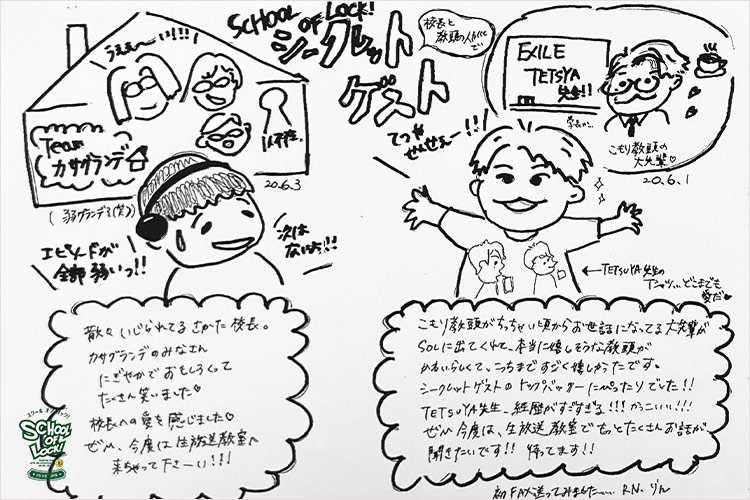 SCHOOL OF LOCK!
シークレット
ゲスト
校長と
教頭の人がいで
うぇぇ〜い!!!
Team
カサグランデ
1人不在。
20.6.3
(弱グランデ3(笑))
エピソードが
全部弱いっ!!
次は
ないぞっ!!
散々いじられてるさかた校長。
カサグランデのみなさん
にぎやかでおもしろくって
たくさん笑いました♡
校長への愛を感じました♡
ぜひ、今度は生放送教室へ
来ちゃって下さーい!!!
EXILE
TETSUYA
先生!!
学長か…
こもり教頭の
大先輩♡
20.6.1
てつや
せんせぇー!!
←TETSUYA先生の
Tシャツ…どこまでも
愛だ♡
こもり教頭がちっちゃい頃からお世話になってる大先輩が
SOLに出てくれて、本当に嬉しそうな教頭が
かわいらしくて、こっちまですごく嬉しかったです。
シークレットゲストのトップバッターにぴったりでした!!
TETSUYA先生、経歴がすごすぎる!!!かっこいい!!!
ぜひ今度は、生放送教室でもっとたくさんお話が
聞きたいです!! 待ってます!!
初FAX送ってみました…… R.N. りん
スクール オブ ロック!
SCHOOL
OF
LOCK!